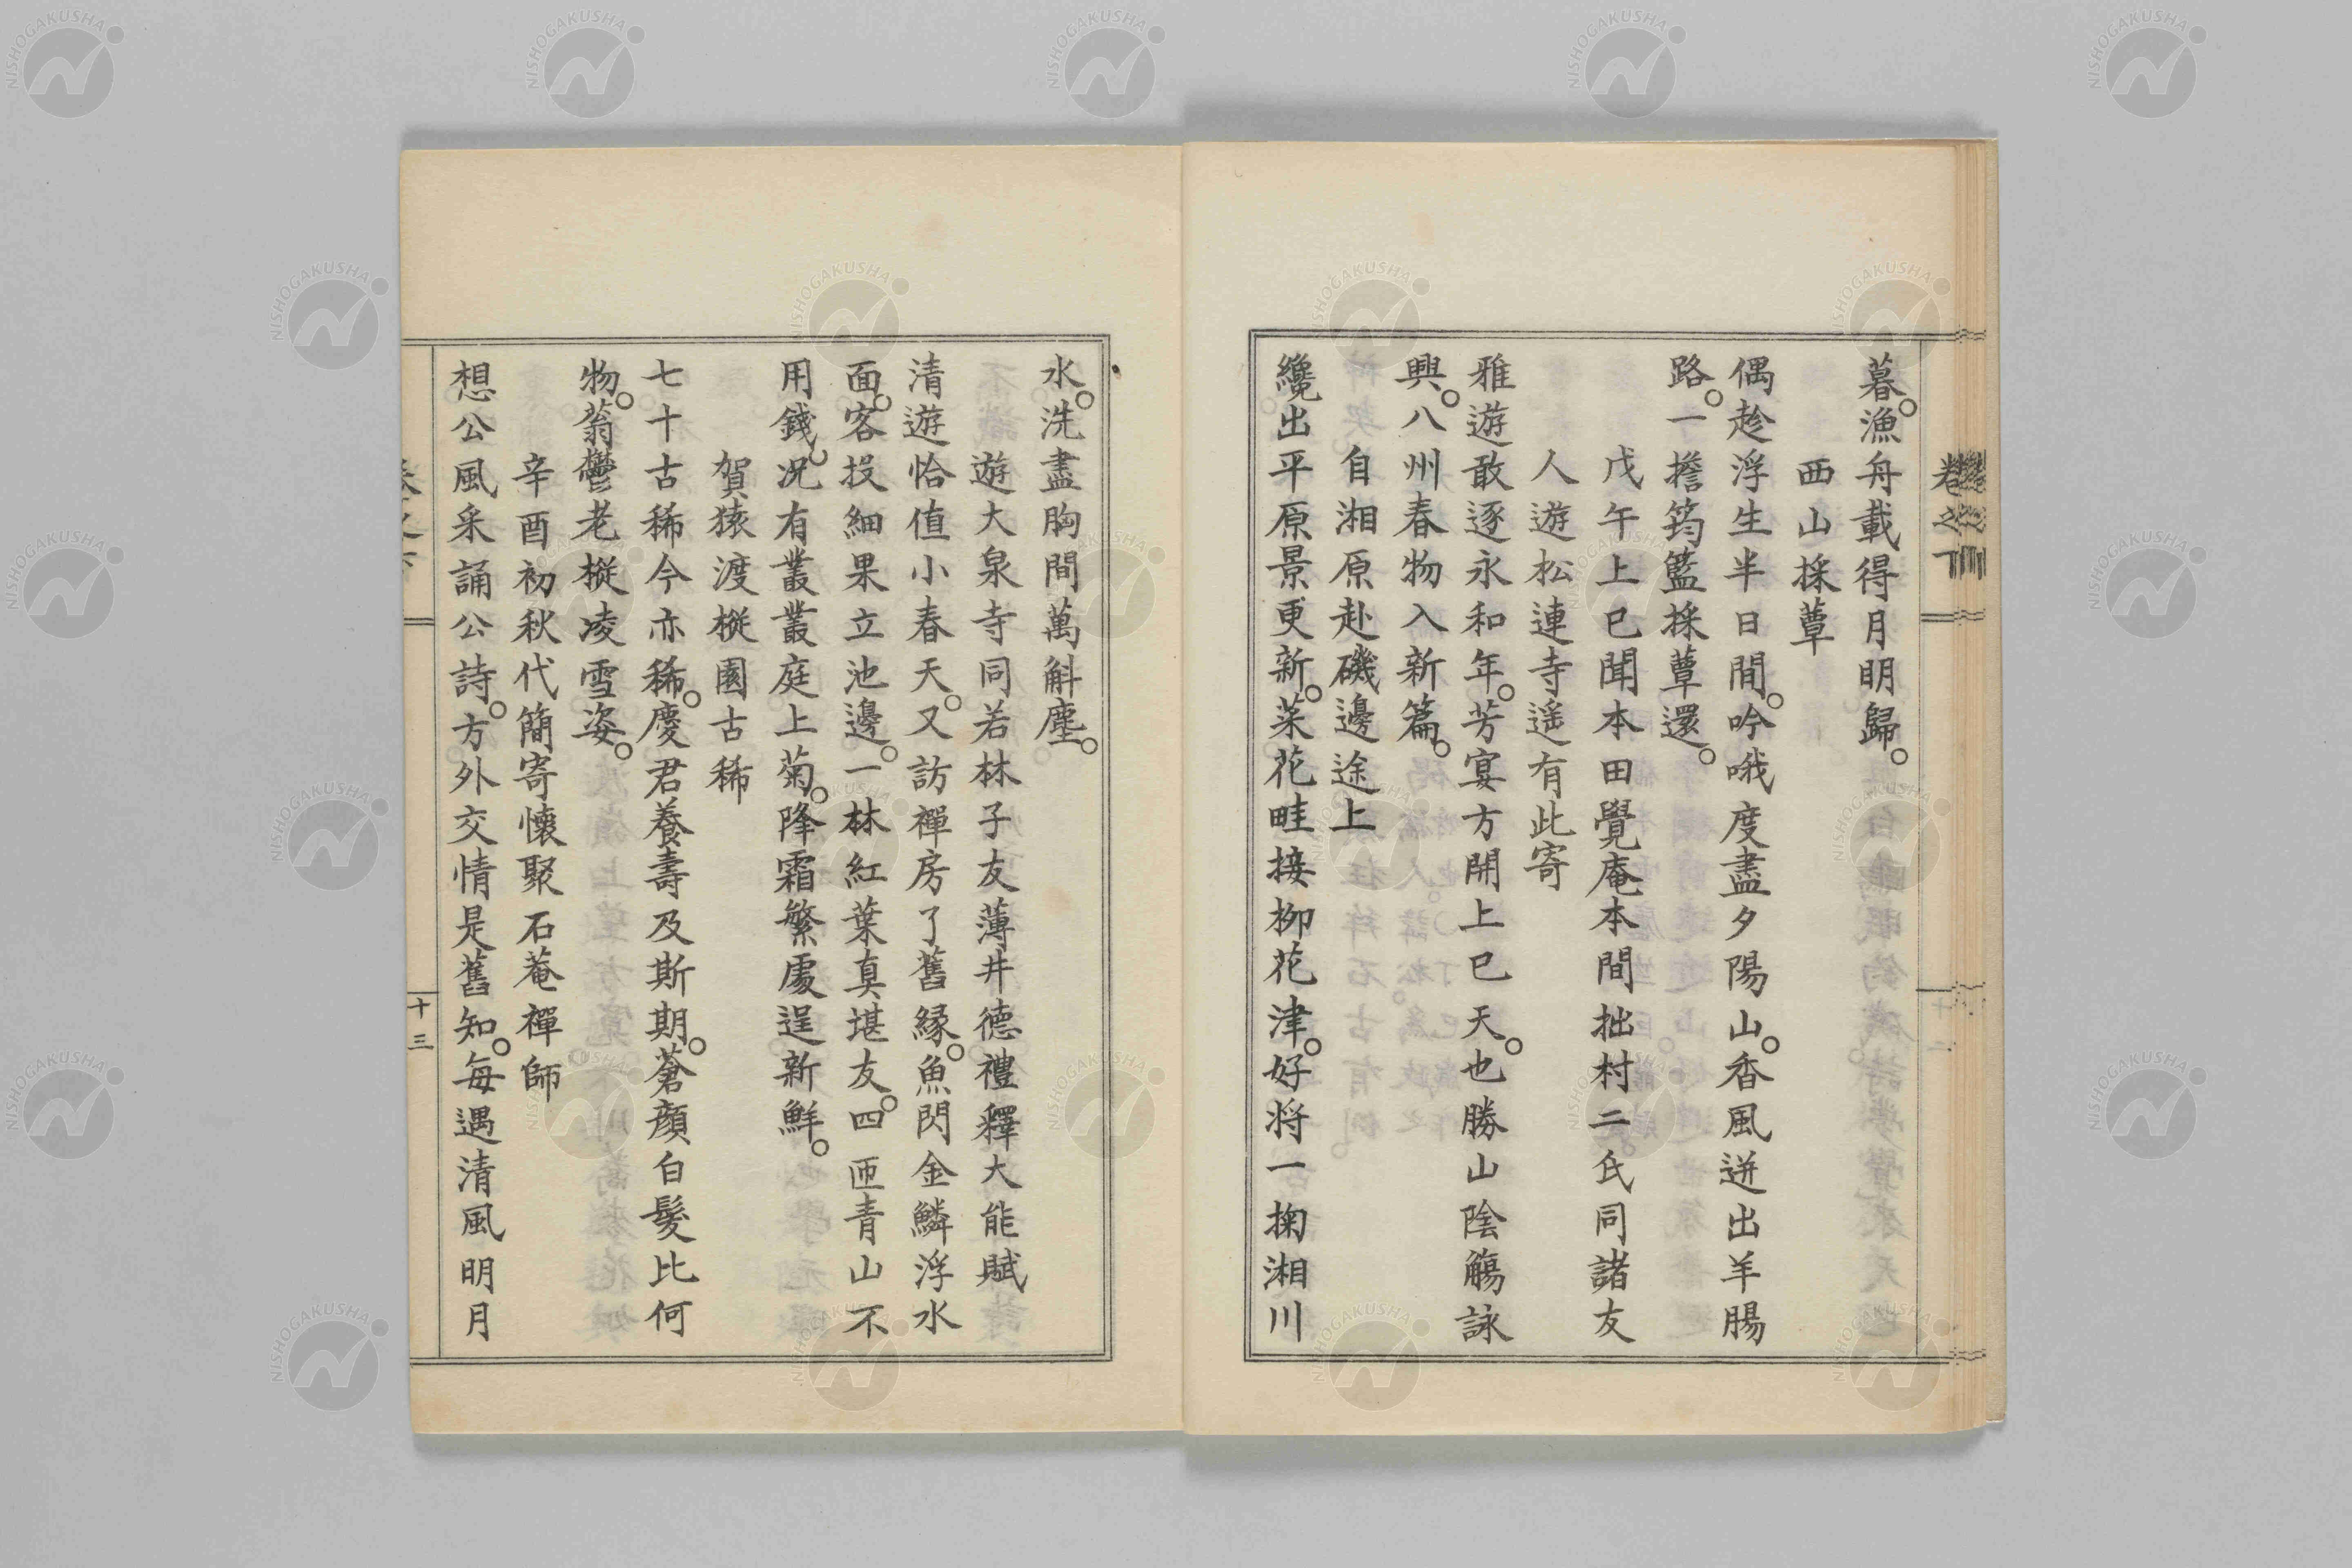 暮。漁舟載得月明歸。
西山採蕈
偶趁浮生半日間。吟哦度盡夕陽山。香風迸出羊腸
路。一擔筠籃採蕈還。
戊午上巳聞本田覺庵本間拙村二氏同諸友
人遊松連寺遥有此寄
雅遊敢逐永和年。芳宴方開上巳天。也勝山陰觴詠
興。八州春物入新篇。
自湘原赴磯邊途上
纔出平原景更新。菜花畦接柳花津。好将一掬湘川
水。洗盡胸間萬斛塵。
遊大泉寺同若林子友薄井德禮釋大能賦
清遊恰值小春天。又訪禪房了舊緣。魚閃金鱗浮水
面。客投細果立池邊。一林紅葉真堪友。四匝青山不
用錢。况有叢叢庭上菊。降霜繁處逞新鮮。
賀猿渡樅園古稀
七十古稀今亦稀。慶君養壽及斯期。蒼顔白髮比何
物。蓊鬱老樅凌雪姿。
辛酉初秋代簡寄懷聚石菴禪師
想公風采誦公詩。方外交情是舊知。每遇清風明月
卷之下
十三
NISHOGAKUSHA